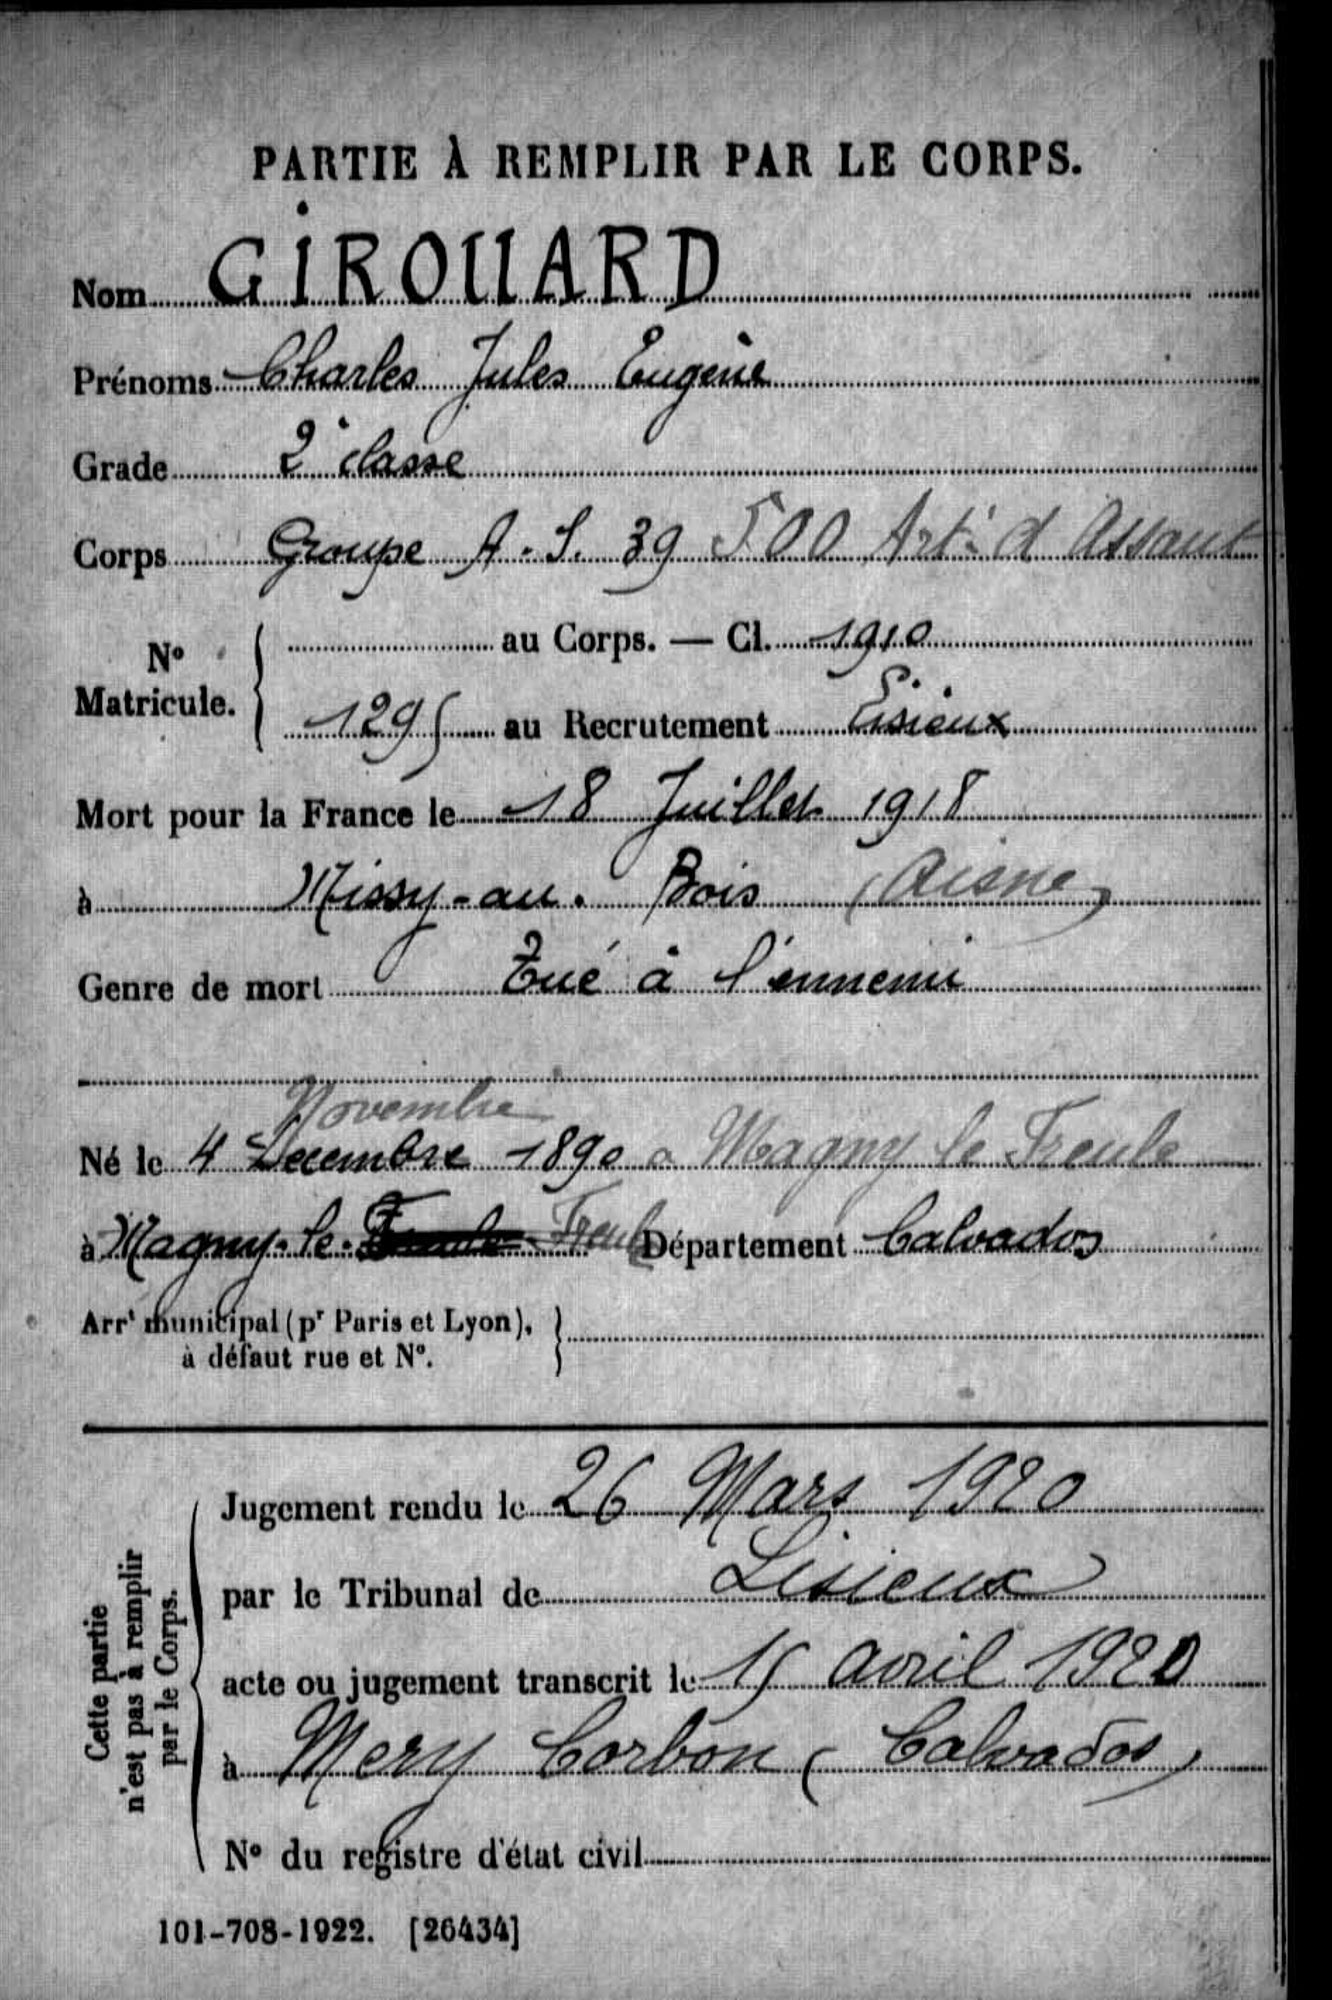 PARTIE À REMPLIR PAR LE CORPS.
Nom GIROUARD
Prénoms Charles Jules Eugène
Grade 2e classe
Corps Groupe A.S. 39 500 Artie d'Assaut
No Matricule. { au Corps. — Cl. 1910
1295 au Recrutement Lisieux
Mort pour la France le 18 Juillet 1918
à Missy-au-Bois (Aisne)
Genre de mort Tué à l'ennemi
Novembre
Né le 4 Decembre 1890 a Magny le Freule
à Magny-le- Freule Département Calvados
Arrt municipal (pr Paris et Lyon), }
à défaut rue et No.
Cette partie
n'est pas à remplir
par le Corps.
Jugement rendu le 26 Mars 1920
par le Tribunal de Lisieux
acte ou jugement transcrit le 15 avril 1920
à Mery Corbon (Calvados)
No du registre d'état civil
101-708-1922. [26434]